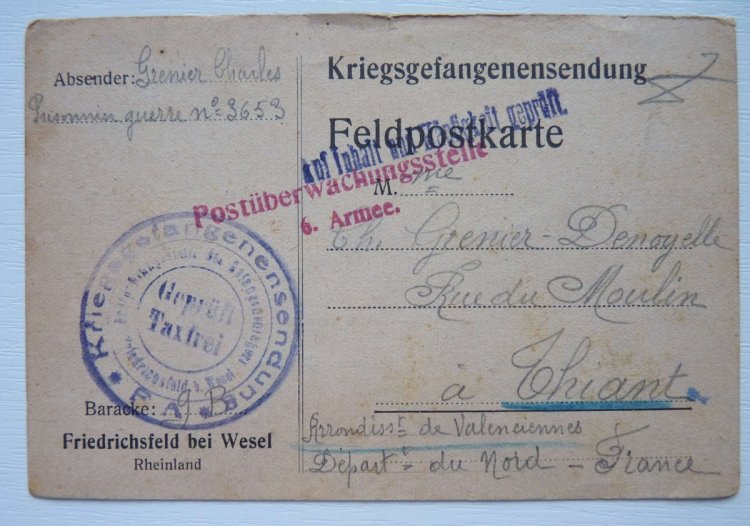 Absender: Grenier Charles
Prisonnier guerre nº 3653
Kriegsgefangenensendung
Feldpostkarte
Auf Inhalt und Zulässigkeit geprüft.
Postüberwachungsstelle
6. Armee.
M. me
Ch. Grenier-Denoyelle
Rue du Moulin
à Thiant
Arrondisst de Valenciennes
Départt du Nord - France
Kriegsgefangenensendung
Geprüft
Taxfrei
Friedrichsfeld b. Wesel
F. A.
Baracke: 9 B
Friedrichsfeld bei Wesel
Rheinland